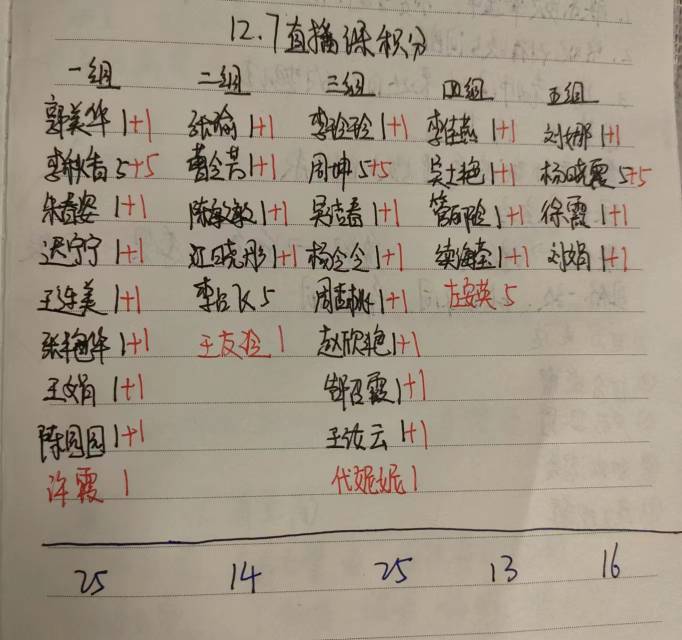 12.7直播课积分
一组 二组 三组 四组 五组
郭美华 1+1 张瑜 1+1 李玲玲 1+1 李佳燕 1+1 刘娜 1+1
李秋香 5+5 曹会芳 1+1 周坤 5+5 吴士艳 1+1 杨晓霞 5+5
朱春姿 1+1 陈敏敏 1+1 吴志春 1+1 管丽脸 1+1 徐霞 1+1
迟宁宁 1+1 江晓彤 1+1 杨令令 1+1 1+1 刘娟 1+1
王连美 1+1 李占飞 5 周 1+1 左安英 5
张艳华 1+1 王友玲 1 赵欣艳 1+1
王娟 1+1 邹召霞 1+1
陈园园 1+1 王汝云 1+1
许霞 1 代妮妮 1
25 14 25 13 16